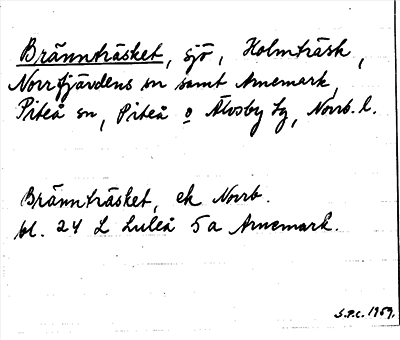 Bränträsket, sjö, Holmträsk,
Norrfjärdens sn samt Arnemark,
Piteå sn, Piteå o Älvsby tg, Norrb. l.
Bränträsket, ek Norrb.
bl. 24 L Luleå 5a Arnemark.
S.P.C. 1959.